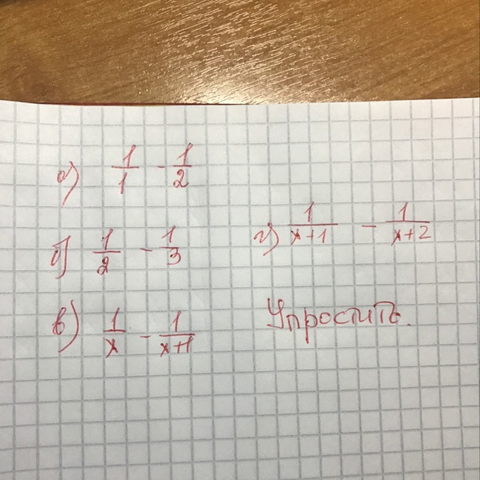 а) 1/1 - 1/2
б) 1/2 - 1/3
в) 1/x - 1/(x+1)
г) 1/(x+1) - 1/(x+2)
Упростить.